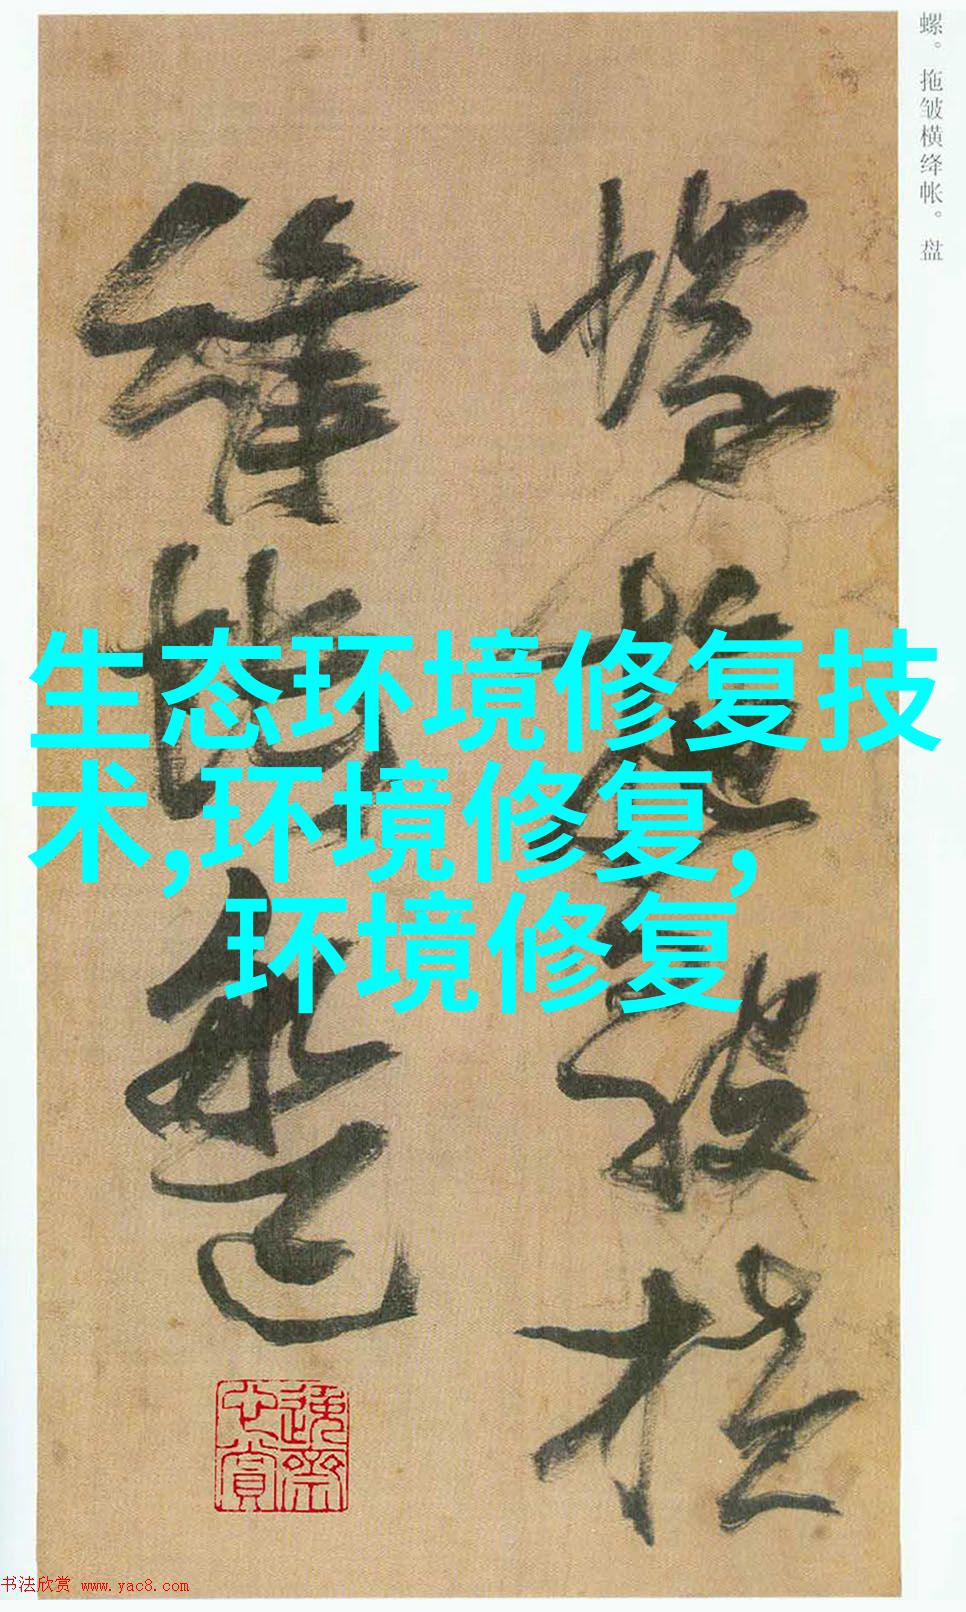 螺。拖皱横绛帐。盘
螺拖皺橫
絳帳盤
生态环境修复技
术,环境修复,
环境修复
书法欣赏 www.yac8.com